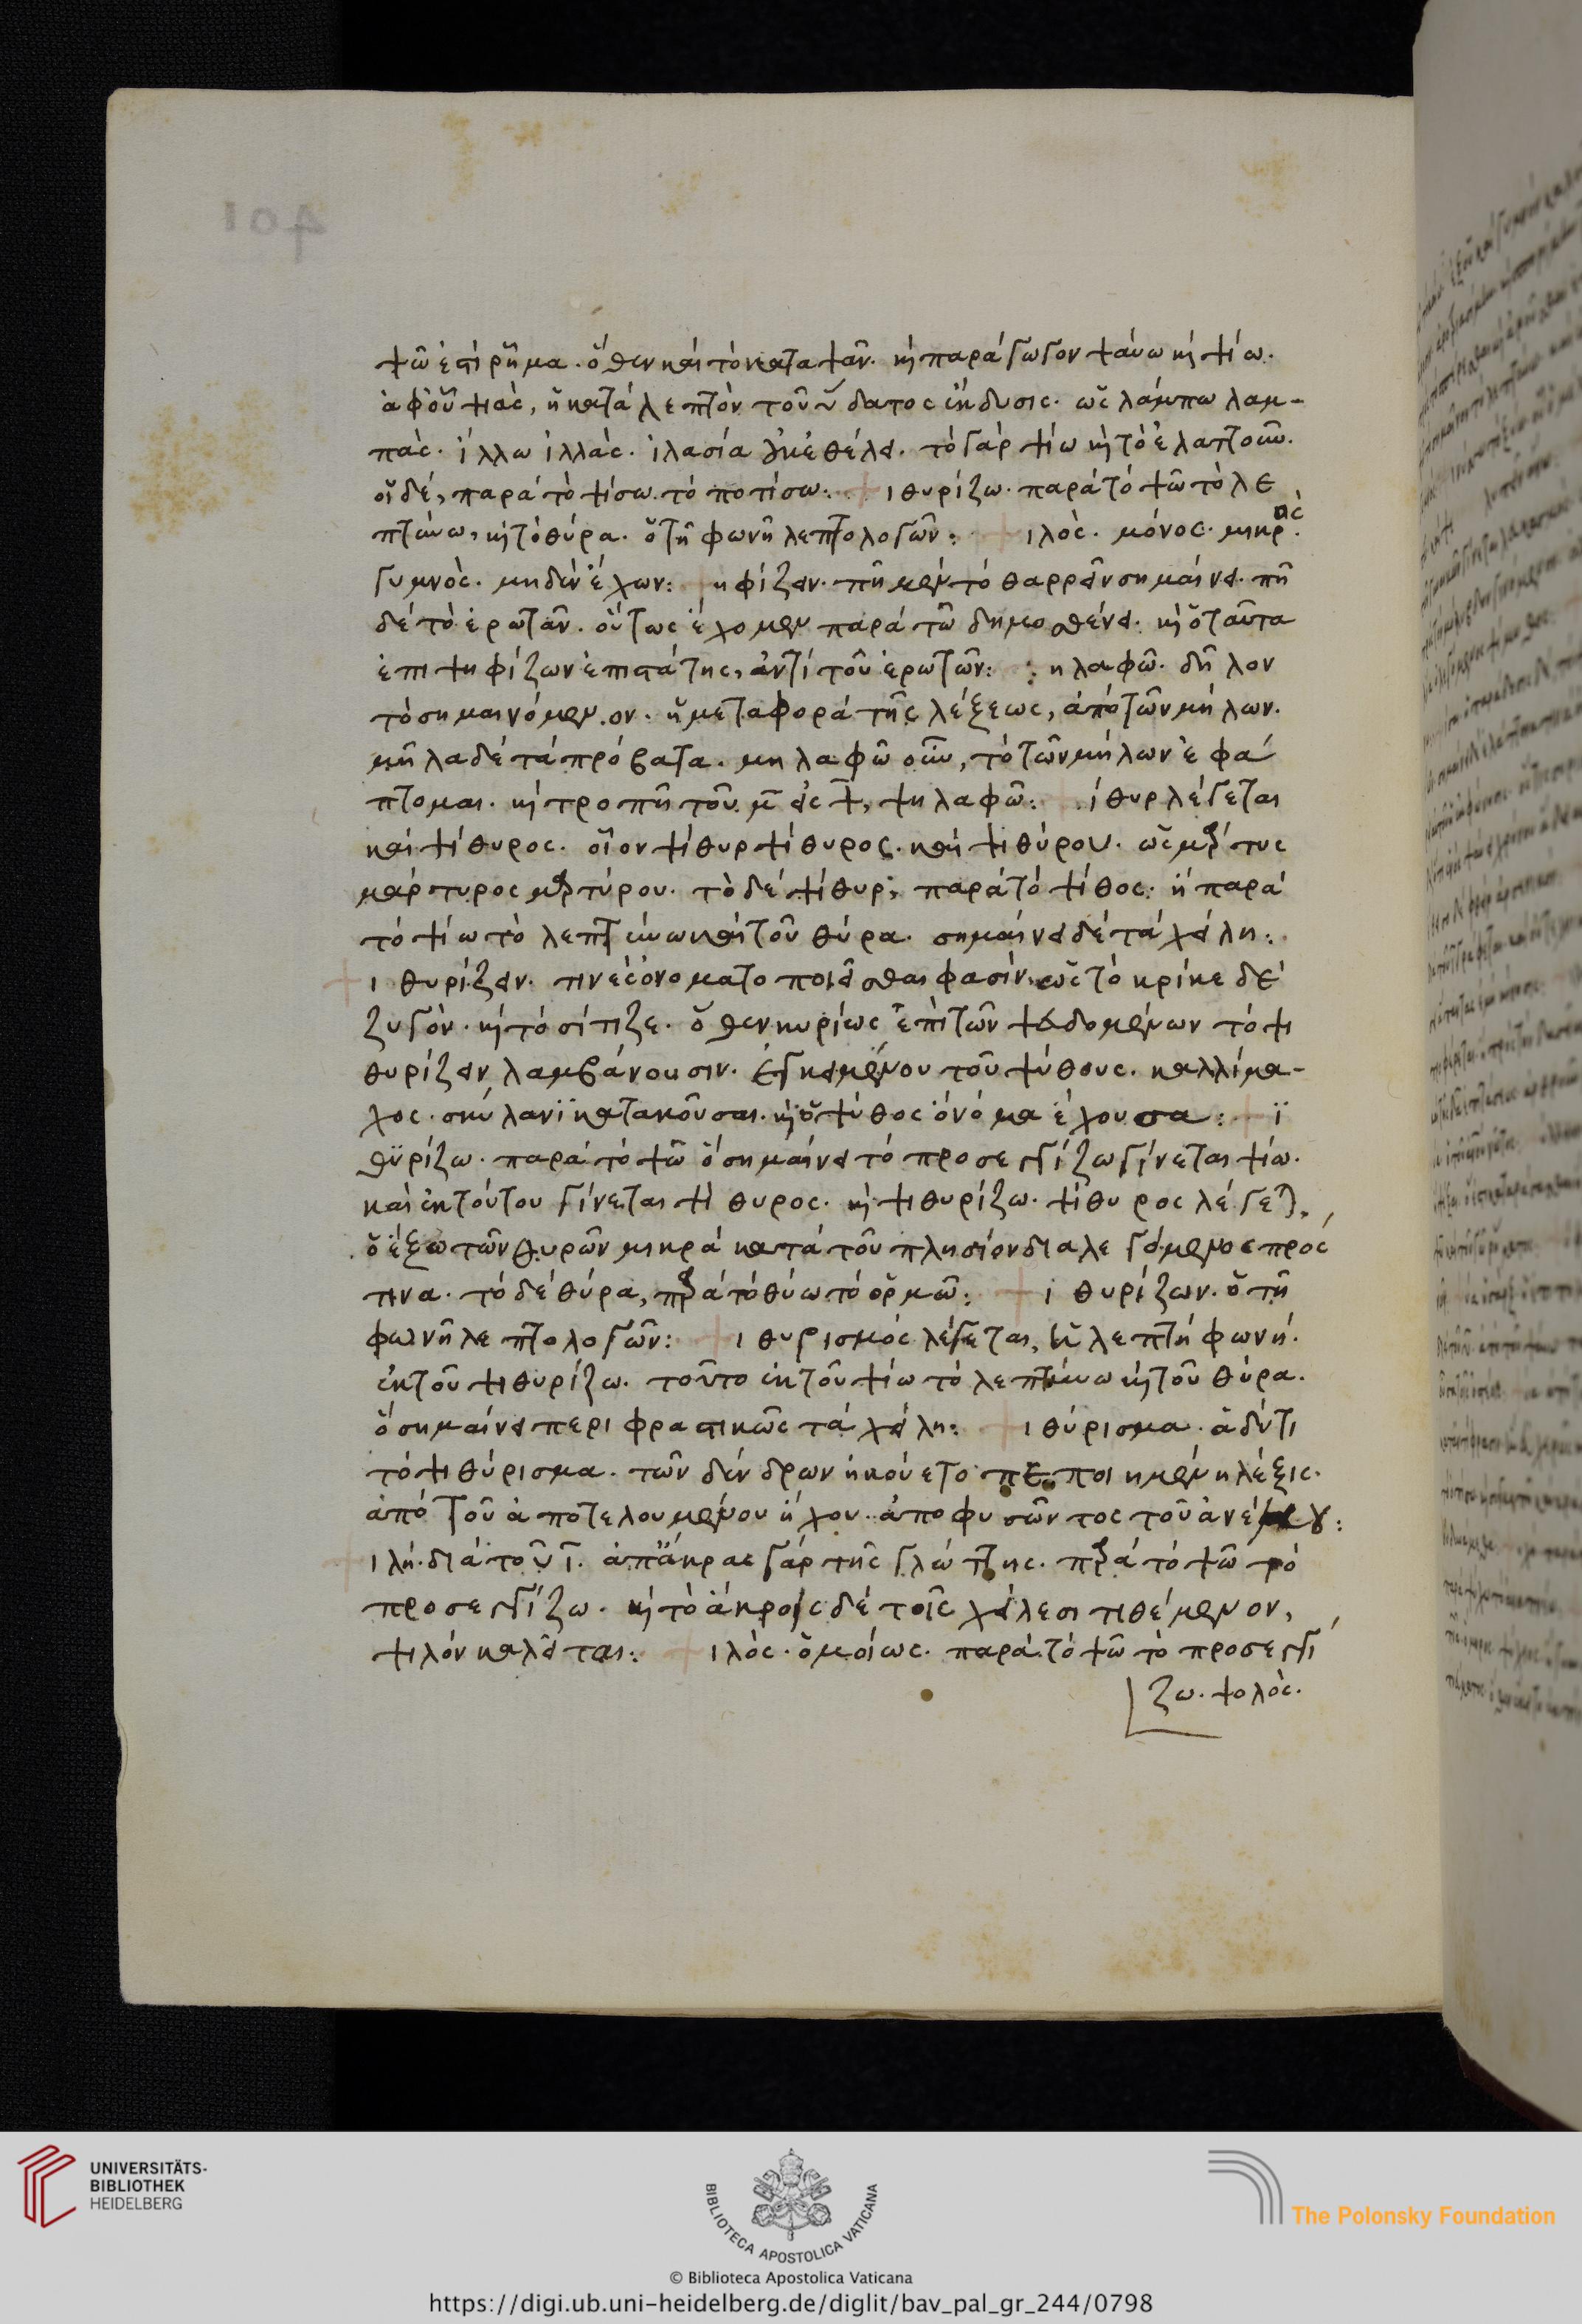 401
ψῶ ἐστὶ ῥῆμα. ὅθεν καὶ τὸ καταψᾶν. κὶ παράγωγον ψάυω κὶ ψίω.
ἀφ' οὗ ψιὰς, ἡ κατὰ λεπτὸν τοῦ ὕδατος ἔνδυσις. ὡς λάμπω λαμ-
πάς. ἵλλω ἰλλάς. τὸ γὰρ ψίω κὶ τὸ ἐλαττοῦν.
οἱ δέ, παρὰ τὸ ψίσω. τὸ ποτίσω: ιθυρίζω. παρὰ τὸ ψῶ τὸ λε
πτύνω, κὶ τὸ θύρα. ὁ τῆ φωνῆ λεπτολογῶν: ιλός. μόνος. μικρός.
γυμνός. μηδὲν ἔχων: ηφίζειν. πῆ μὲν τὸ θαρρεῖν σημαίνει. πῆ
δὲ τὸ ἐρωτᾶν. οὕτως ἔχομεν παρὰ τῶ δημοσθένει. κὶ ὁ ταῦτα
ἐπιψηφίζων ἐπιστάτης, ἀντὶ τοῦ ἐρωτῶν: ηλαφῶ. δῆλον
τὸ σημαινόμενον. ἡ μεταφορὰ τῆς λέξεως, ἀπὸ τῶν μήλων.
μῆλα δὲ τὰ πρόβατα. μηλαφῶ οὖν, τὸ τῶν μήλων ἐφά
πτομαι. κὶ τροπῆ τοῦ μ εἰς ψ, ψηλαφῶ: ίθυρ λέγεται
καὶ ψίθυρος. οἷον ψίθυρ ψίθυρος. καὶ ψιθύρου. ὡς μάρτυς
μάρτυρος μαρτύρου. τὸ δὲ ψίθυρ, παρὰ τὸ ψίθος. ἢ παρὰ
τὸ ψίω τὸ λεπτύνω καὶ τοῦ θύρα. σημαίνει δὲ τὰ χείλη:
ιθυρίζειν. τινὲς ὀνοματοποιεῖσθαι φασίν. ὡς τὸ κρίκε δὲ
ζυγόν. κὶ τὸ σίτιζε. ὅθεν κυρίως ἐπὶ τῶν ψευδομένων τὸ ψι
θυρίζειν λαμβάνουσιν. ἐγκειμένου τοῦ ψύθους. καλλίμα-
χος. κὶ ὁ ψύθος ὄνομα ἔχουσα: ϊ
θϋρίζω. παρὰ τὸ ψῶ ὃ σημαίνει τὸ προσεγγίζω γίνεται ψίω.
καὶ ἐκ τούτου γίνεται ψίθυρος. κὶ ψιθυρίζω. ψίθυρος λέγεται,
ὁ ἔξω τῶν θυρῶν μικρὰ κατὰ τοῦ πλησίον διαλεγόμενος πρός
τινα. τὸ δὲ θύρα, παρὰ τὸ θύω τὸ ὁρμῶ: ιθυρίζων. ὁ τῆ
φωνῆ λεπτολογῶν: ιθυρισμός λέγεται, ἡ λεπτὴ φωνή.
ἐκ τοῦ ψιθυρίζω. τοῦτο ἐκ τοῦ ψίω τὸ λεπτύνω κὶ τοῦ θύρα.
ὃ σημαίνει περιφραστικῶς τὰ χείλη: ιθύρισμα. ἁδύ τι
τὸ ψιθύρισμα. τῶν δένδρων ἠκούετο πεποιημένη λέξις.
ἀπὸ τοῦ ἀποτελουμένου ἤχου. ἀποφυσῶντος τοῦ ἀνέμου:
ιλή. διὰ τοῦ ι. ἀπ' ἄκρας γὰρ τῆς γλώττης. παρὰ τὸ ψῶ τὸ
προσεγγίζω. κὶ τὸ ἄκροις δὲ τοῖς χείλεσι τιθέμενον,
ψιλὸν καλεῖται: ιλός. ὁμοίως. παρὰ τὸ ψῶ τὸ προσεγγί
ζω. ψολός.
UNIVERSITÄTS-
BIBLIOTHEK
HEIDELBERG
BIBLIOTECA APOSTOLICA VATICANA
The Polonsky Foundation
© Biblioteca Apostolica Vaticana
https://digi.ub.uni-heidelberg.de/diglit/bav_pal_gr_244/0798